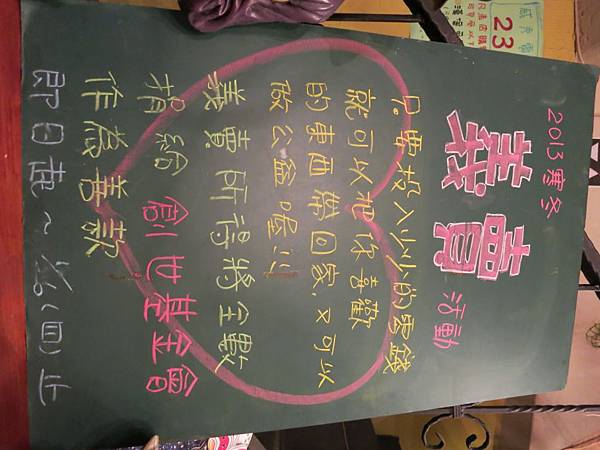 2013寒冬
義賣活動
只要投入少少的零錢
就可以把你喜歡
的東西帶回家,又可以
做公益喔!!
義賣所得將全數
捐給 創世基金會
作為善款
23